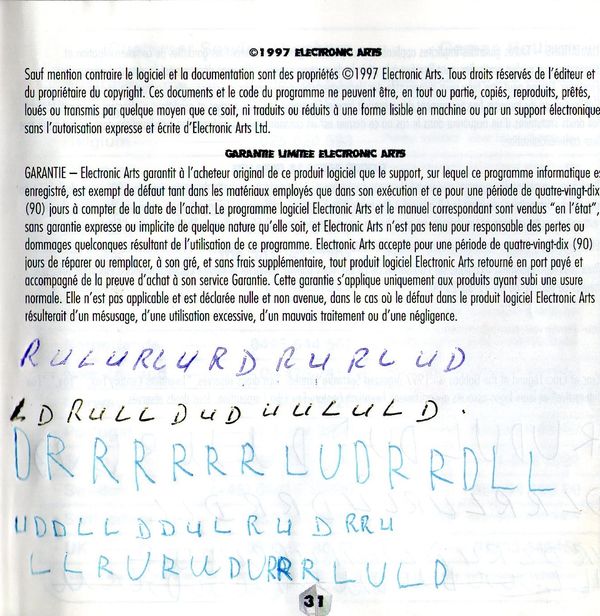 ©1997 ELECTRONIC ARTS
Sauf mention contraire le logiciel et la documentation sont des propriétés ©1997 Electronic Arts. Tous droits réservés de l'éditeur et
du propriétaire du copyright. Ces documents et le code du programme ne peuvent être, en tout ou partie, copiés, reproduits, prêtés,
loués ou transmis par quelque moyen que ce soit, ni traduits ou réduits à une forme lisible en machine ou par un support électronique
sans l'autorisation expresse et écrite d'Electronic Arts Ltd.
GARANTIE LIMITEE ELECTRONIC ARTS
GARANTIE – Electronic Arts garantit à l'acheteur original de ce produit logiciel que le support, sur lequel ce programme informatique es
enregistré, est exempt de défaut tant dans les matériaux employés que dans son exécution et ce pour une période de quatre-vingt-dix
(90) jours à compter de la date de l'achat. Le programme logiciel Electronic Arts et le manuel correspondant sont vendus "en l'état",
sans garantie expresse ou implicite de quelque nature qu'elle soit, et Electronic Arts n'est pas tenu pour responsable des pertes ou
dommages quelconques résultant de l'utilisation de ce programme. Electronic Arts accepte pour une période de quatre-vingt-dix (90)
jours de réparer ou remplacer, à son gré, et sans frais supplémentaire, tout produit logiciel Electronic Arts retourné en port payé et
accompagné de la preuve d'achat à son service Garantie. Cette garantie s'applique uniquement aux produits ayant subi une usure
normale. Elle n'est pas applicable et est déclarée nulle et non avenue, dans le cas où le défaut dans le produit logiciel Electronic Arts
résulterait d'un mésusage, d'une utilisation excessive, d'un mauvais traitement ou d'une négligence.
R U L U R L U R D R U R L U D
L D R U L L D U D U U L U L D .
D R R R R R R L U D R R D L L
U D D L L D D U L R U D R R U
L L R U R U D U R R R L U L D
31